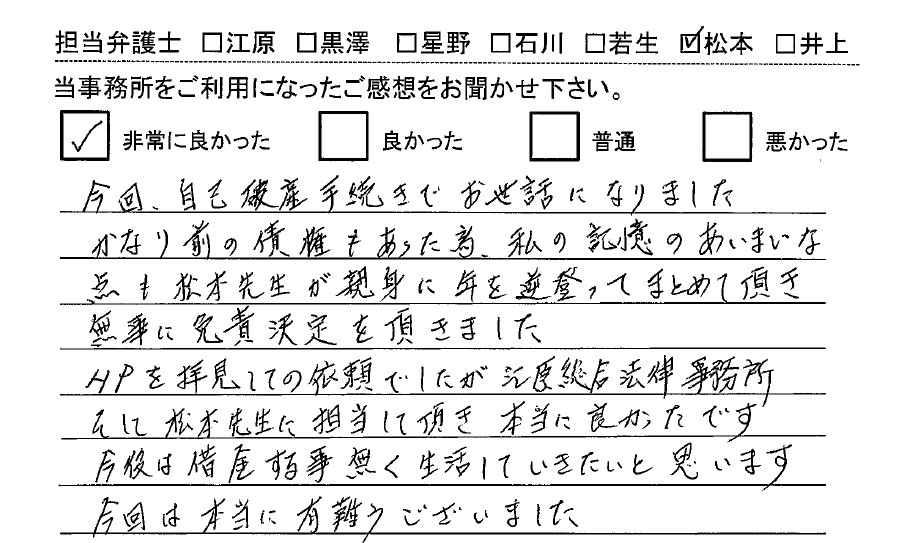 担当弁護士 □江原 □黒澤 □星野 □石川 □若生 ☑松本 □井上
当事務所をご利用になったご感想をお聞かせ下さい。
☑ 非常に良かった □ 良かった □ 普通 □ 悪かった
今回、自己破産手続きでお世話になりました
かなり前の債権もあった為、私の記憶のあいまいな
点も松本先生が親身に年を逆登ってまとめて頂き
無事に免責決定を頂きました
HPを拝見しての依頼でしたが江原総合法律事務所
そして松本先生に担当して頂き本当に良かったです
今後は借金する事無く生活していきたいと思います
今回は本当に有難うございました